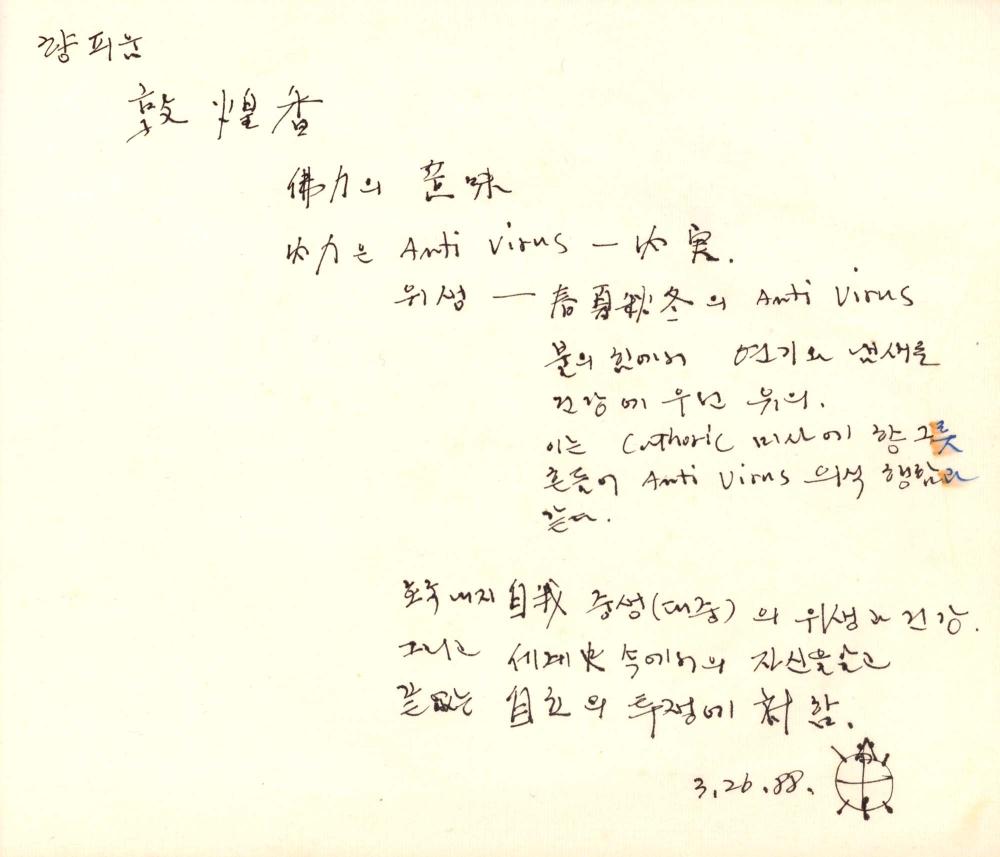 향 피움
敦煌香
佛力의 意味
內力은 Anti Virus — 內実.
위생 — 春夏秋冬의 Anti Virus
불의 힘에서 연기와 냄새를
건강에 우선 위의.
이는 Cathoric 미사에 향 그릇
흔들어 Anti Virus 의식 행함과
같다.
호국 내지 自我 중생(대중)의 위생과 건강.
그리고 세계史 속에서의 자신을 알고
끝없는 自立의 투쟁에 対함.
3.26.88.